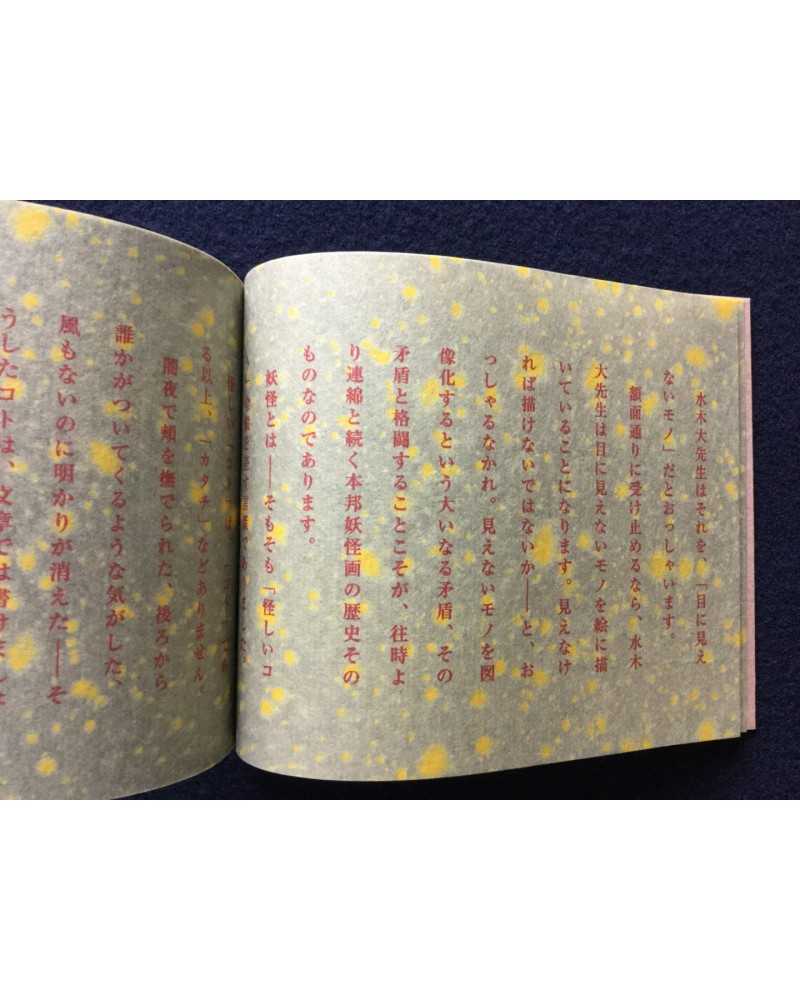 水木大先生はそれを、「目に見え
ないモノ」だとおっしゃいます。
額面通りに受け止めるなら、水木
大先生は目に見えないモノを絵に描
いていることになります。見えなけ
れば描けないではないか——と、お
っしゃるなかれ。見えないモノを図
像化するという大いなる矛盾、その
矛盾と格闘することこそが、往時よ
り連綿と続く本邦妖怪画の歴史その
ものなのであります。
妖怪とは——そもそも「怪しいコ
る以上、「カタチ」などありません。
闇夜で頬を撫でられた、後ろから
誰かがついてくるような気がした、
風もないのに明かりが消えた——そ
うしたコトは、文章では書けました